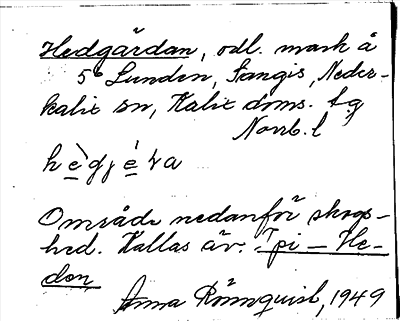 Hedgärdan, odl. mark å
5° Lunden, Sangis, Neder-
kalix sn, Kalix doms. tg
Norrb. l
hègjéra
Område nedanför skogs-
hed. Kallas äv. Ypi-He-
den
Anna Rönnquist, 1949